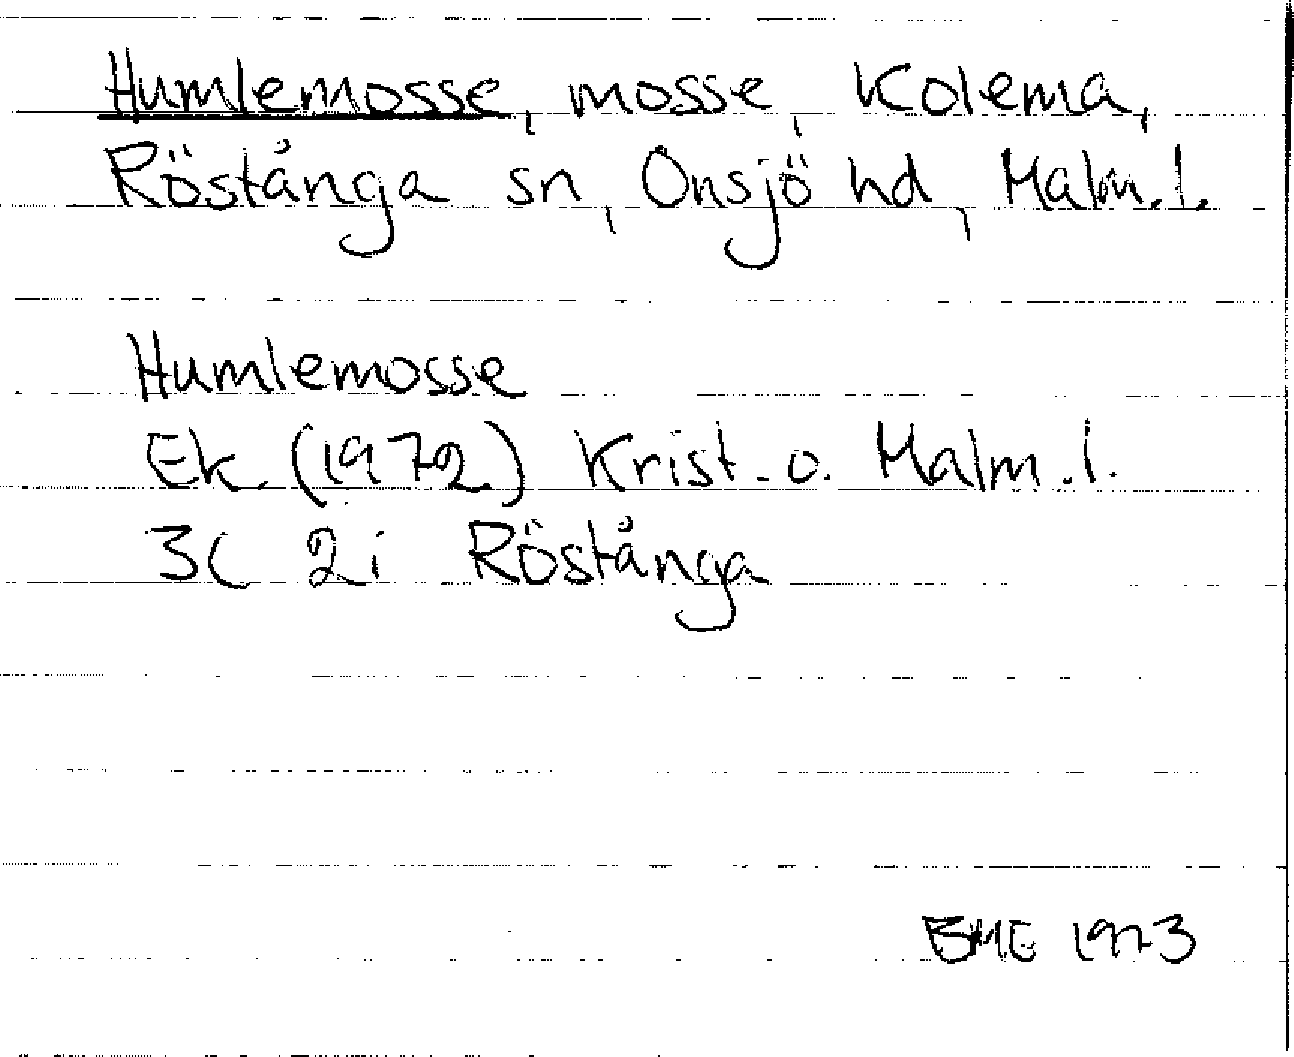 Humlemosse, mosse, Kolema,
Röstånga sn, Onsjö hd, Malm.l.
Humlemosse
Ek (1972) Krist. o. Malm.l.
3C 2i Röstånga
BME 1973